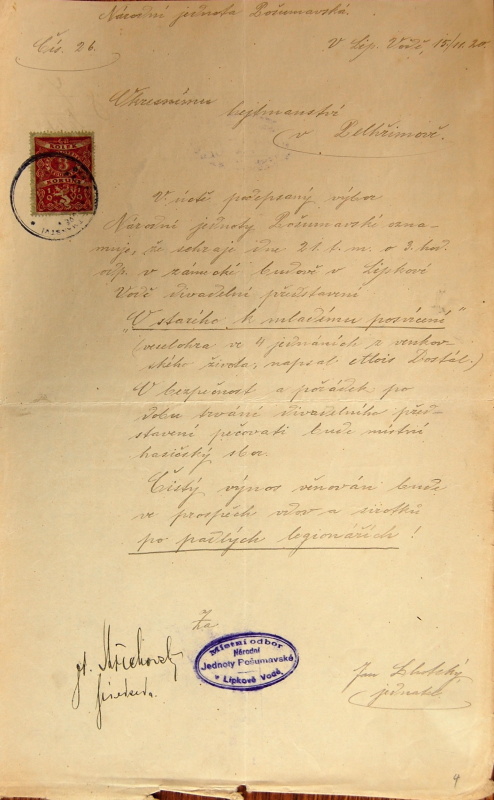 Národní jednota Pošumavská.
Čís. 26.
V Lip. Vodě, 15/11. 20.
Okresnímu
hejtmanství
v Pelhřimově.
KOLEK
KORUNY
V úctě podepsaný výbor
Národní jednoty Pošumavské ozna-
muje, že sehraje dne 21. t. m. o 3. hod.
odp. v zámecké budově v Lipkové
Vodě divadelní představení
"O starého k mladému posvícení"
(veselohra ve 4 jednáních z venkov-
ského života, napsal Alois Dostál.)
O bezpečnost a pořádek po
dobu trvání divadelního před-
stavení pečovati bude místní
hasičský sbor.
Čistý výnos věnován bude
ve prospěch vdov a sirotků
po padlých legionářích!
Za
Místní odbor
Národní
Jednoty Pošumavské
Lipkové Vodě
Jan
jednatel
4